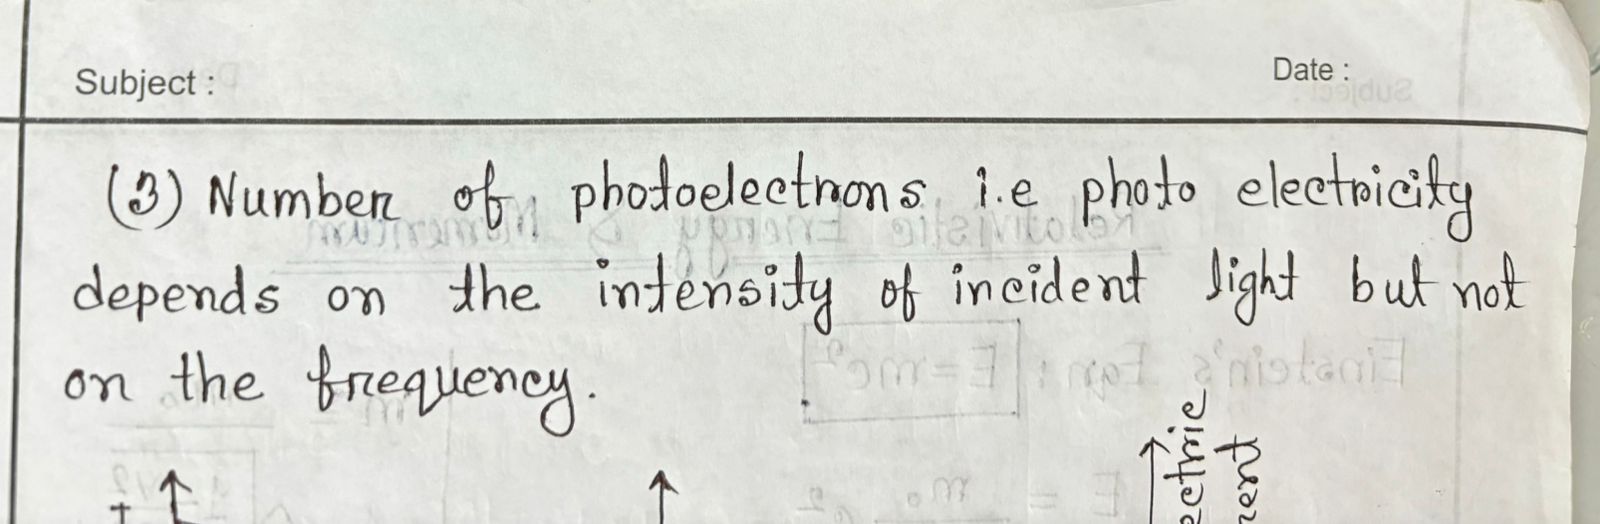 Subject :
Date :
(3) Number of photoelectrons i.e photo electricity
depends on the intensity of incident light but not
on the frequency.